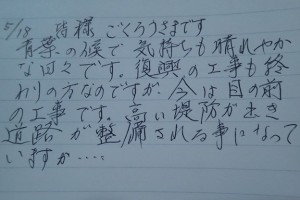 5/18 皆様 ごくろうさまです
青葉の候で 気持ちも晴れやか
な日々です。復興の工事も終
わりの方なのですが、今は目の前
の工事です。高い堤防が出き
道路が整備される事になって
いますが……